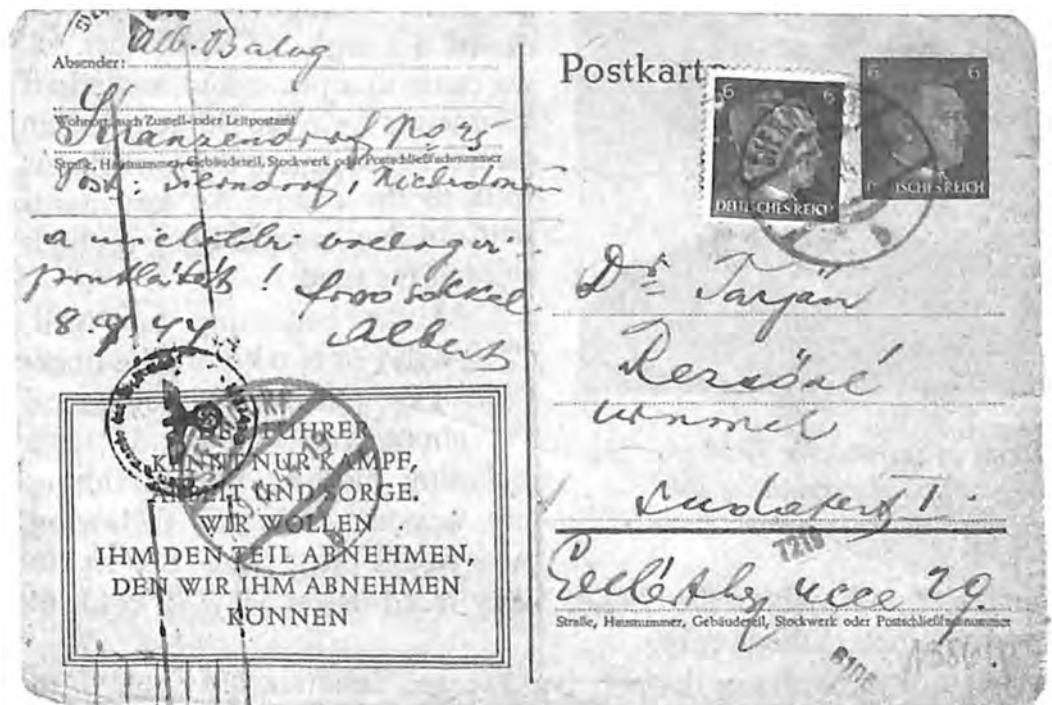 Alb. Balog
Absender:
Wohnort, auch Zustell- oder Leitpostamt
Schanzendorf No 25
Straße, Hausnummer, Gebäudeteil, Stockwerk oder Postschließfachnummer
Post: Sierndorf, Niederdonau
a mielőbbi
! Albert
DER FÜHRER
KENNT NUR KAMPF,
ARBEIT UND SORGE.
WIR WOLLEN
IHM DEN TEIL ABNEHMEN,
DEN WIR IHM ABNEHMEN
KÖNNEN
Postkarte
6 6
DEUTSCHES REICH
6 6
DEUTSCHES REICH
Dr Tarján
Rezsőné
urnőnek
Budapest I.
7210
utca 29.
Straße, Hausnummer, Gebäudeteil, Stockwerk oder Postschließfachnummer